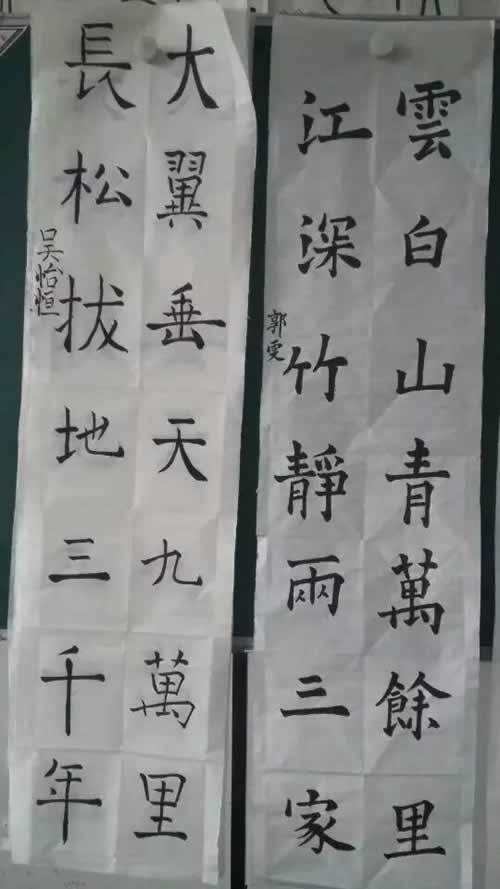 雲白山青萬餘里
江深竹靜兩三家
郭雯
大翼垂天九萬里
長松拔地三千年
吴怡恒